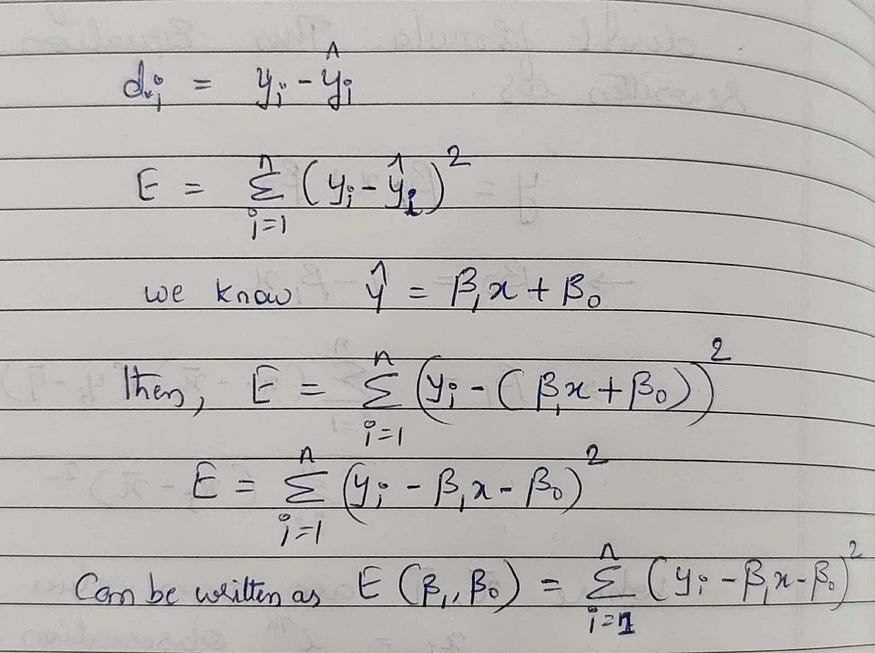 dᵢ = yᵢ - ŷᵢ
E = Σᵢ₌₁ⁿ (yᵢ - ŷᵢ)²
we know ŷ = β₁x + β₀
Then, E = Σᵢ₌₁ⁿ (yᵢ - (β₁x + β₀))²
E = Σᵢ₌₁ⁿ (yᵢ - β₁x - β₀)²
Can be written as E (β₁, β₀) = Σᵢ₌₁ⁿ (yᵢ - β₁x - β₀)²